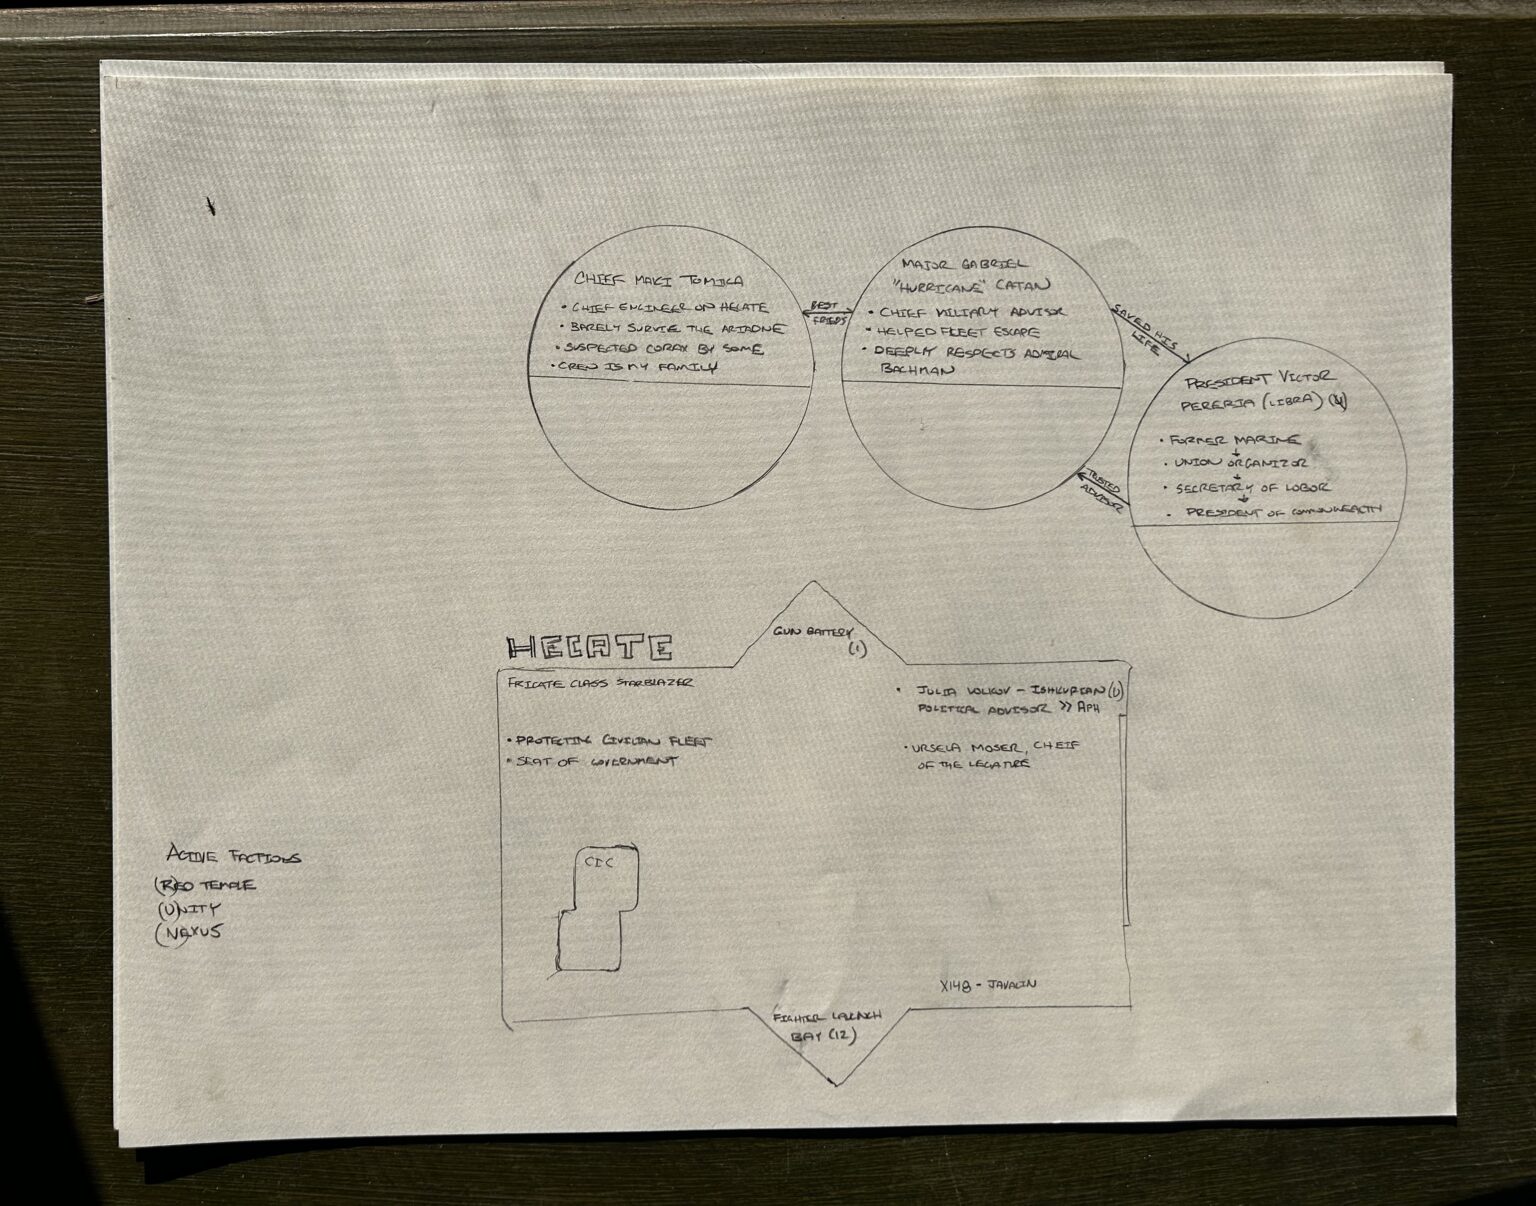 CHIEF MAKI TOMIKA
• CHIEF ENGINEER ON HECATE
• BARELY SURVIE THE ARIADNE
• SUSPECTED CORAX BY SOME
• CREW IS MY FAMILY
BEST
FRIEDS
MAJOR GABRIEL
"HURRICANE" CATAN
• CHIEF MILITARY ADVISOR
• HELPED FLEET ESCAPE
• DEEPLY RESPECTS ADMIRAL
BACHMAN
SAVED HIS
LIFE
TRUSTED
ADVISOR
PRESIDENT VICTOR
PERERIA (LIBRA)
• FORMER MARINE
• UNION ORGANIZOR
• SECRETARY OF LOBOR
• PRESIDENT OF COMMONWEALTH
GUN BATTERY
(1)
HECATE
FRIGATE CLASS STARBLAZER
• PROTECTING CIVILIAN FLEET
• SEAT OF GOVERNMENT
• JULIA VOLKOV - ISHKURIAN (U)
POLITICAL ADVISOR >> APH
• URSELA MOSER, CHEIF
OF THE LEGATURE
CIC
X148 - JAVALIN
FIGHTER LAUNCH
BAY (12)
ACTIVE FACTIONS
(R)ED TEMPLE
(U)NITY
(N)EXUS